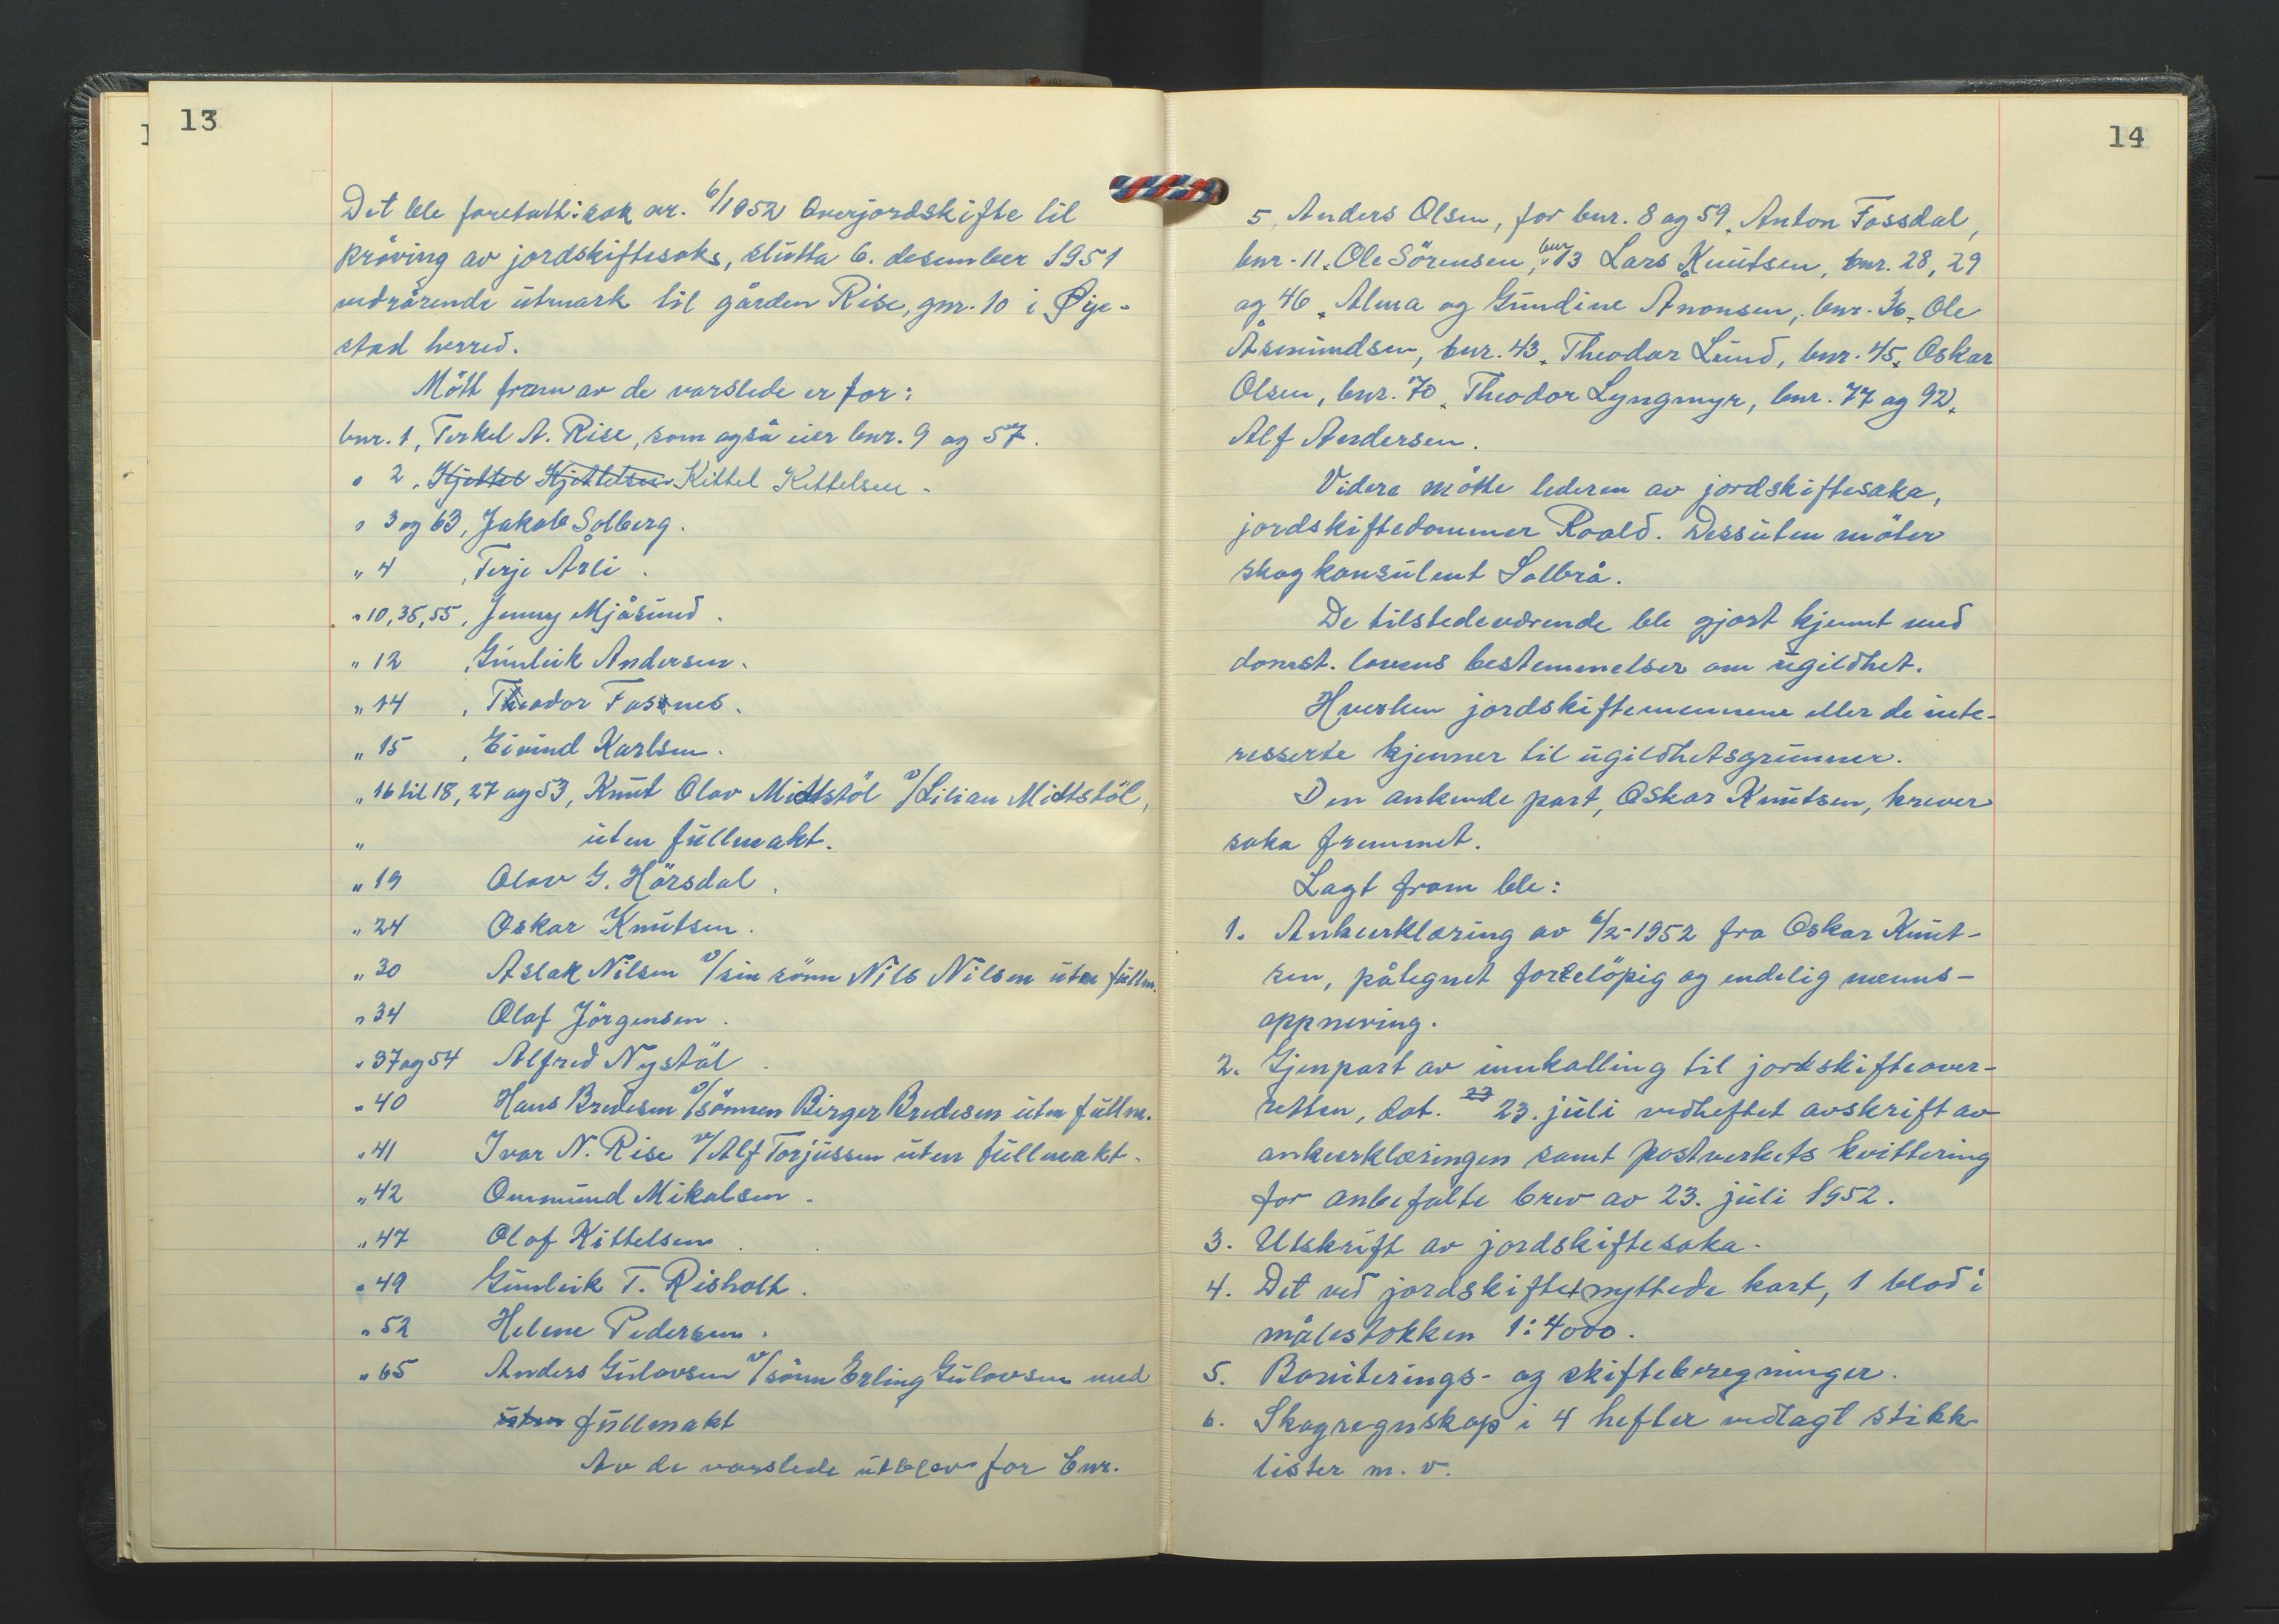 13
Det ble foretatt: sak nr. 6/1952 Overjordskifte til
prøving av jordskiftesak, slutta 6. desember 1951
vedrørende utmark til gården Rise, gnr. 10 i Øye-
stad herred.
Møtt fram av de varslede er for:
bnr. 1, Terkel A. Rise, som også eier bnr. 9 og 57.
" 2, Kjettel Kjettelsen Kittel Kettelsen.
" 3 og 63, Jakob Solberg.
" 4 , Terje Årli.
" 10, 35, 55, Jenny Mjåsund.
" 12 , Gunleik Andersen.
" 14 , Theodor Fosnes.
" 15 , Eivind Karlsen.
" 16 til 18, 27 og 53, Knut Olav Midtstöl v/Lilian Midtstöl,
" uten fullmakt.
" 19 Olav G. Hörsdal.
" 24 Oskar Knutsen.
" 30 Aslak Nilsen v/sin sönn Nils Nilsen uten fullm.
" 34 Olaf Jörgensen.
" 37 og 54 Alfred Nystöl.
" 40 Hans Bredesen v/sönnen Birger Bredesen uten fullm.
" 41 Ivar N. Rise v/Alf Torjussen uten fullmakt.
" 42 Ommund Mikalsen.
" 47 Olaf Kittelsen.
" 49 Gunleik T. Risholt.
" 52 Helene Pedersen.
" 65 Anders Gulovsen v/sönn Erling Gulovsen med
uten fullmakt
Av de varslede utblev for bnr.
14
5, Anders Olsen, for bnr. 8 og 59, Anton Fossdal,
bnr. 11, Ole Sörensen, bnr. 13 Lars Knutsen, bnr. 28, 29
og 46, Alma og Gundine Aanonsen, bnr. 36, Ole
Åsmundsen, bnr. 43, Theodor Lund, bnr. 45, Oskar
Olsen, bnr. 70, Theodor Lyngmyr, bnr. 77 og 92,
Alf Andersen.
Videre møtte lederen av jordskiftesaka,
jordskiftedommer Roald. Dessuten möter
skogkonsulent Solbrå.
De tilstedeværende ble gjort kjennt med
domst. lovens bestemmelser om ugildhet.
Hverken jordskiftemennene eller de inte-
resserte kjenner til ugildhetsgrunner.
Den ankende part, Oskar Knutsen, krever
saka fremmet.
Lagt fram ble:
1. Ankeerklæring av 6/2-1952 fra Oskar Knut-
sen, påtegnet forelöpig og endelig menns-
oppnevning.
2. Gjenpart av innkalling til jordskifteover-
retten, dat. 23 23. juli vedheftet avskrift av
ankeerklæringen samt postverkets kvittering
for anbefalte brev av 23. juli 1952.
3. Utskrift av jordskiftesaka.
4. Det ved jordskiftet nyttede kart, 1 blad i
målestokken 1:4000.
5. Boniterings- og skifteberegninger.
6. Skogregnskap i 4 hefter vedlagt stikk-
lister m. v.